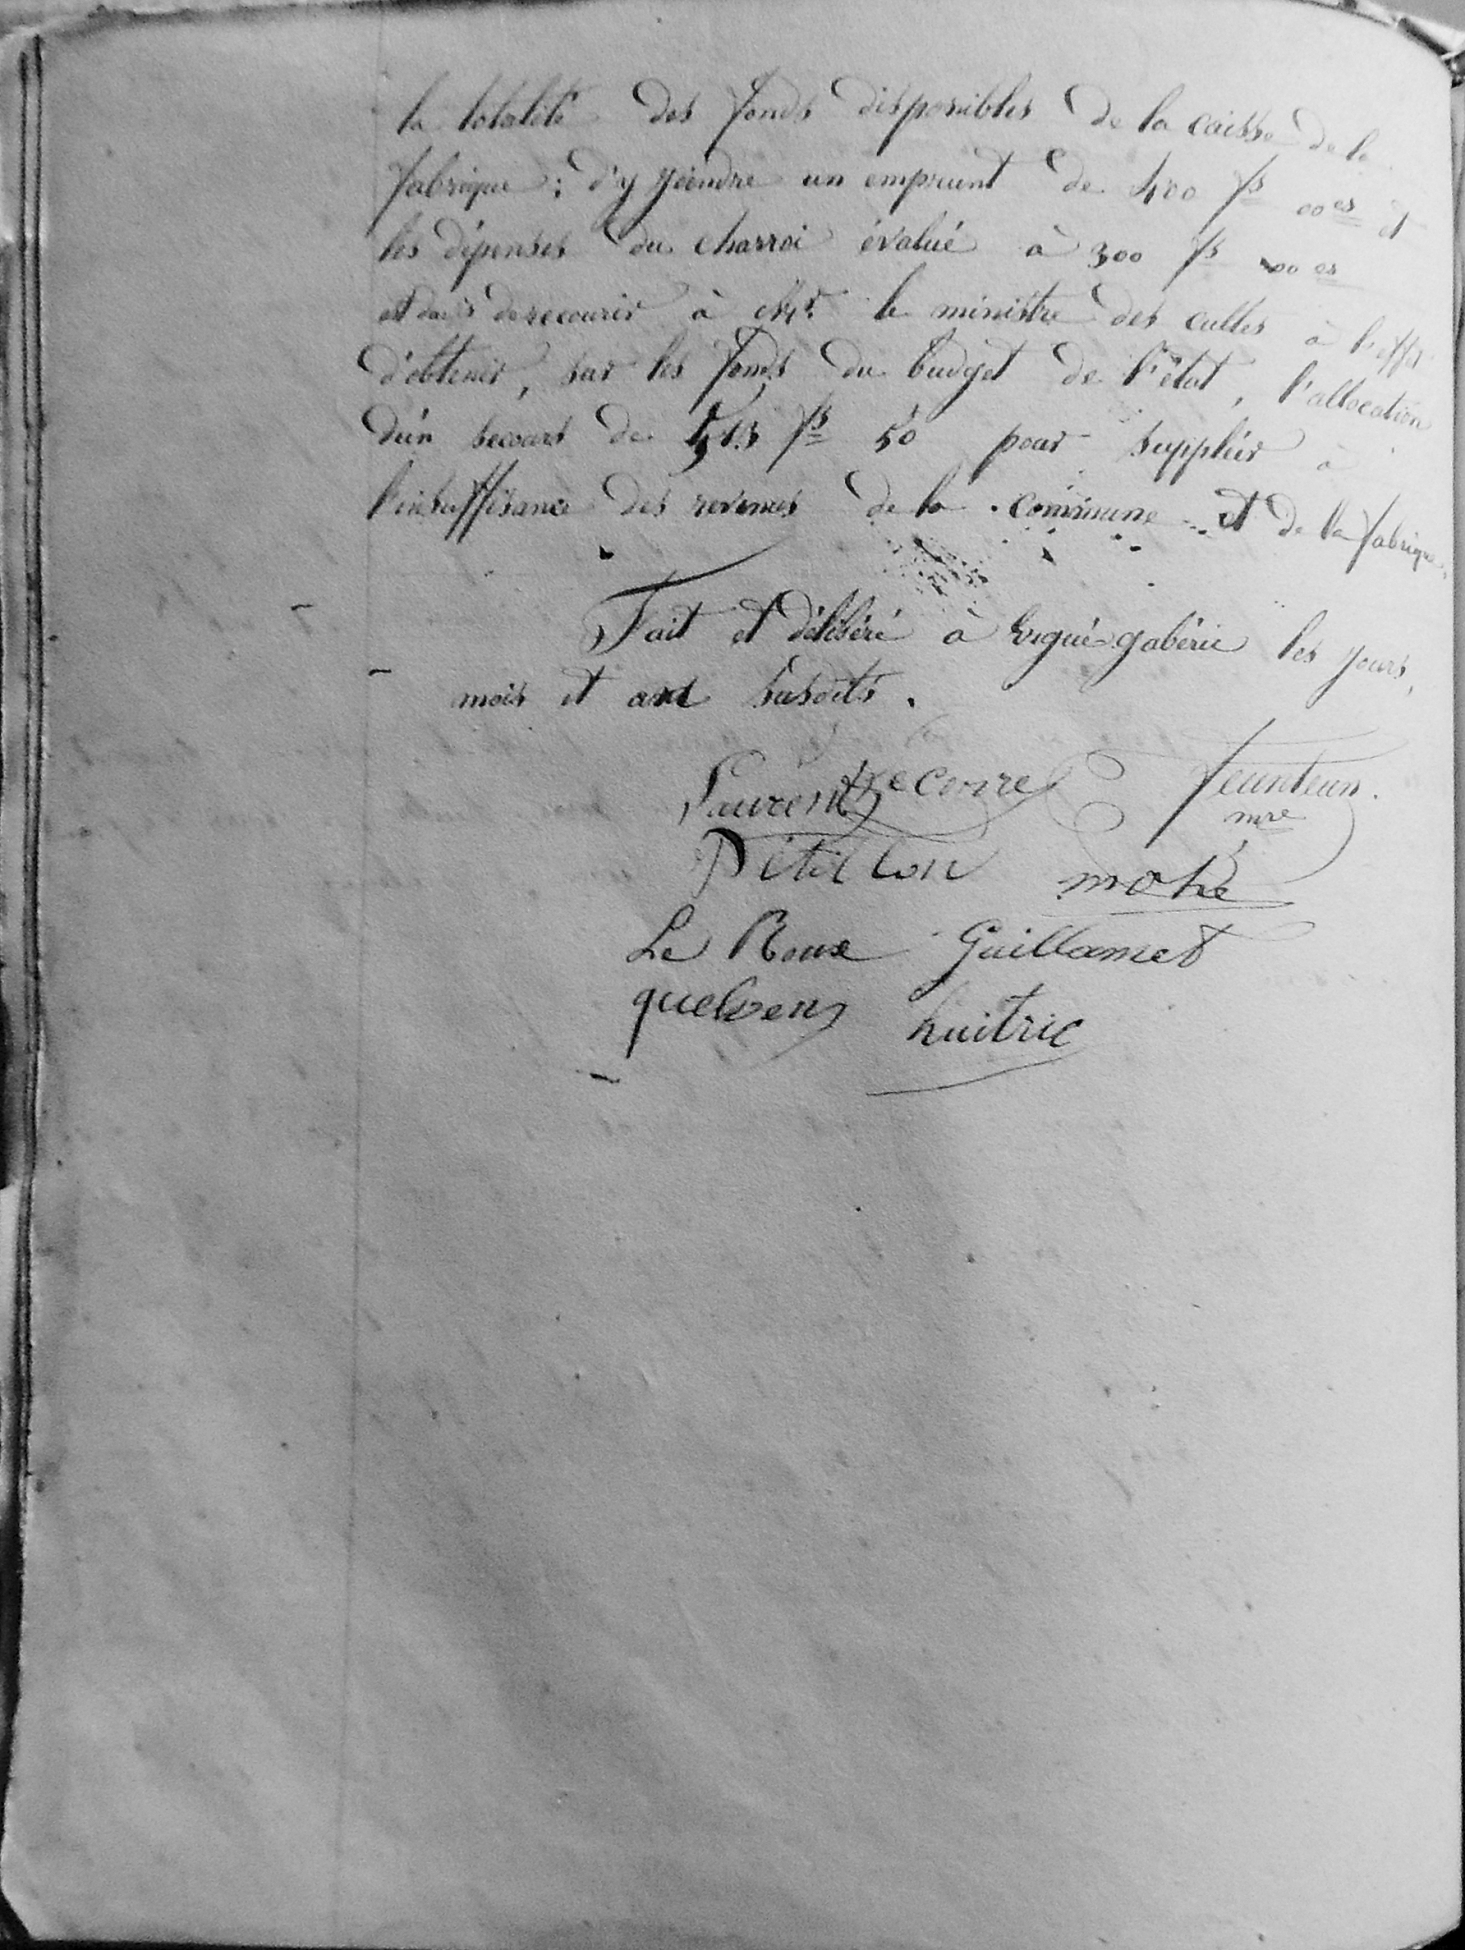 la totalité des fonds disponibles de la caisse de la
fabrique ; d'y joindre un emprunt de 400 fs 00 cs et
les dépenses du charroi évalué à 300 fs 00 cs
et de recourir à Mr. le ministre des cultes à l'effet
d'obtenir, sur les fonds du budget de l'état, l'allocation
d'un secours de 513 fs 50 pour suppléer à
l'insuffisance des revenus de la commune et de la fabrique.
Fait et délibéré à Ergué-gabéric les jours,
mois et an susdits.
Laurent Le Corre Feunteun.
mre
Pétillon mahé
Le Roux Guillamet
quelven huitric